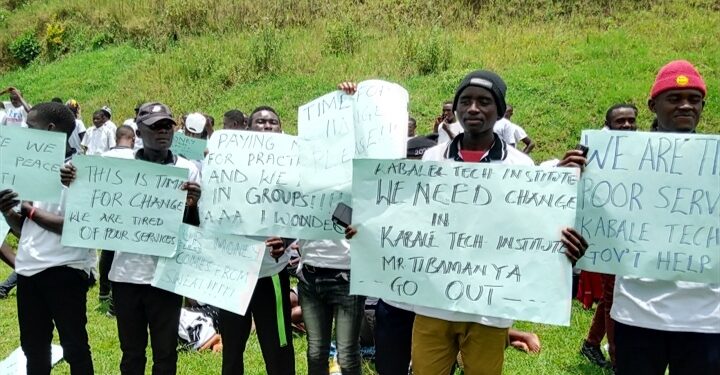 WE
PEACE
THIS IS TIME
FOR CHANGE
WE ARE TIRED
OF POUR SERVICES
PAYING
FOR PRACTI
AND WE
IN GROUPS!!!!
AAA I WONDER
MONEY
COMES FROM
SWEAT!!!!!
TIME FOR
KABALE TECH INSTITUTE
WE NEED CHANGE
IN
KABALE TECH INSTITUTE
MR TIBAMANYA
-- GO OUT ---
WE ARE TI
POOR SERV
KABALE TECH
GOV'T HELP